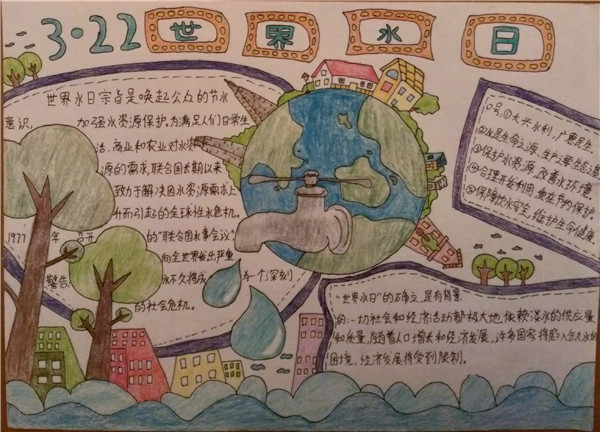 3·22 世界水日
世界水日宗旨是唤起公众的节水
意识, 加强水资源保护。为满足人们日常生
活、商业和农业对水资
源的需求,联合国长期以来
致力于解决因水资源需求上
升而引起的全球性水危机。
1977 年 召开
的"联合国水事会议",
向全世界发出严重
警告: 水不久将成 为一个深刻
的社会危机。
口号:①大兴水利,广惠民生。
②水是生命之源,生产之要,生态之基
③保护水资源,改善水环境
④合理开发利用
⑤保障饮水安全,维护生命健康。
"世界水日"的确立,是有背景
的:一切社会和经济活动都极大地依赖淡水的供应量
和质量,随着人口增长和经济发展,许多国家将陷入缺水的
困境,经济发展将受到限制。